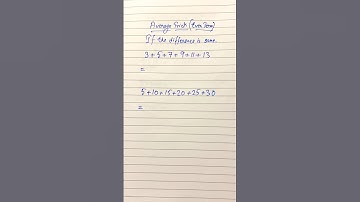 Average Trick (Even Term)
If the difference is same.
3+5+7+9+11+13
=
5+10+15+20+25+30
=